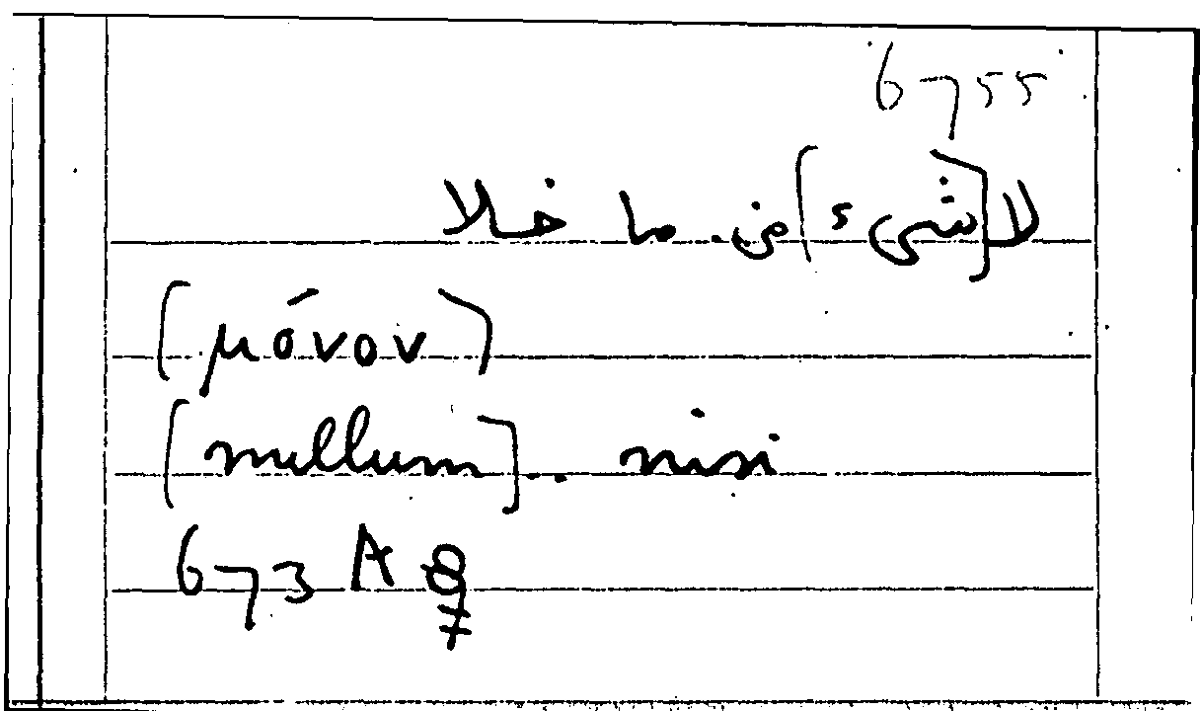 6755
لا [شيء] من. ما خلا
[μόνον]
[nullum].. nisi
673 A 8
7